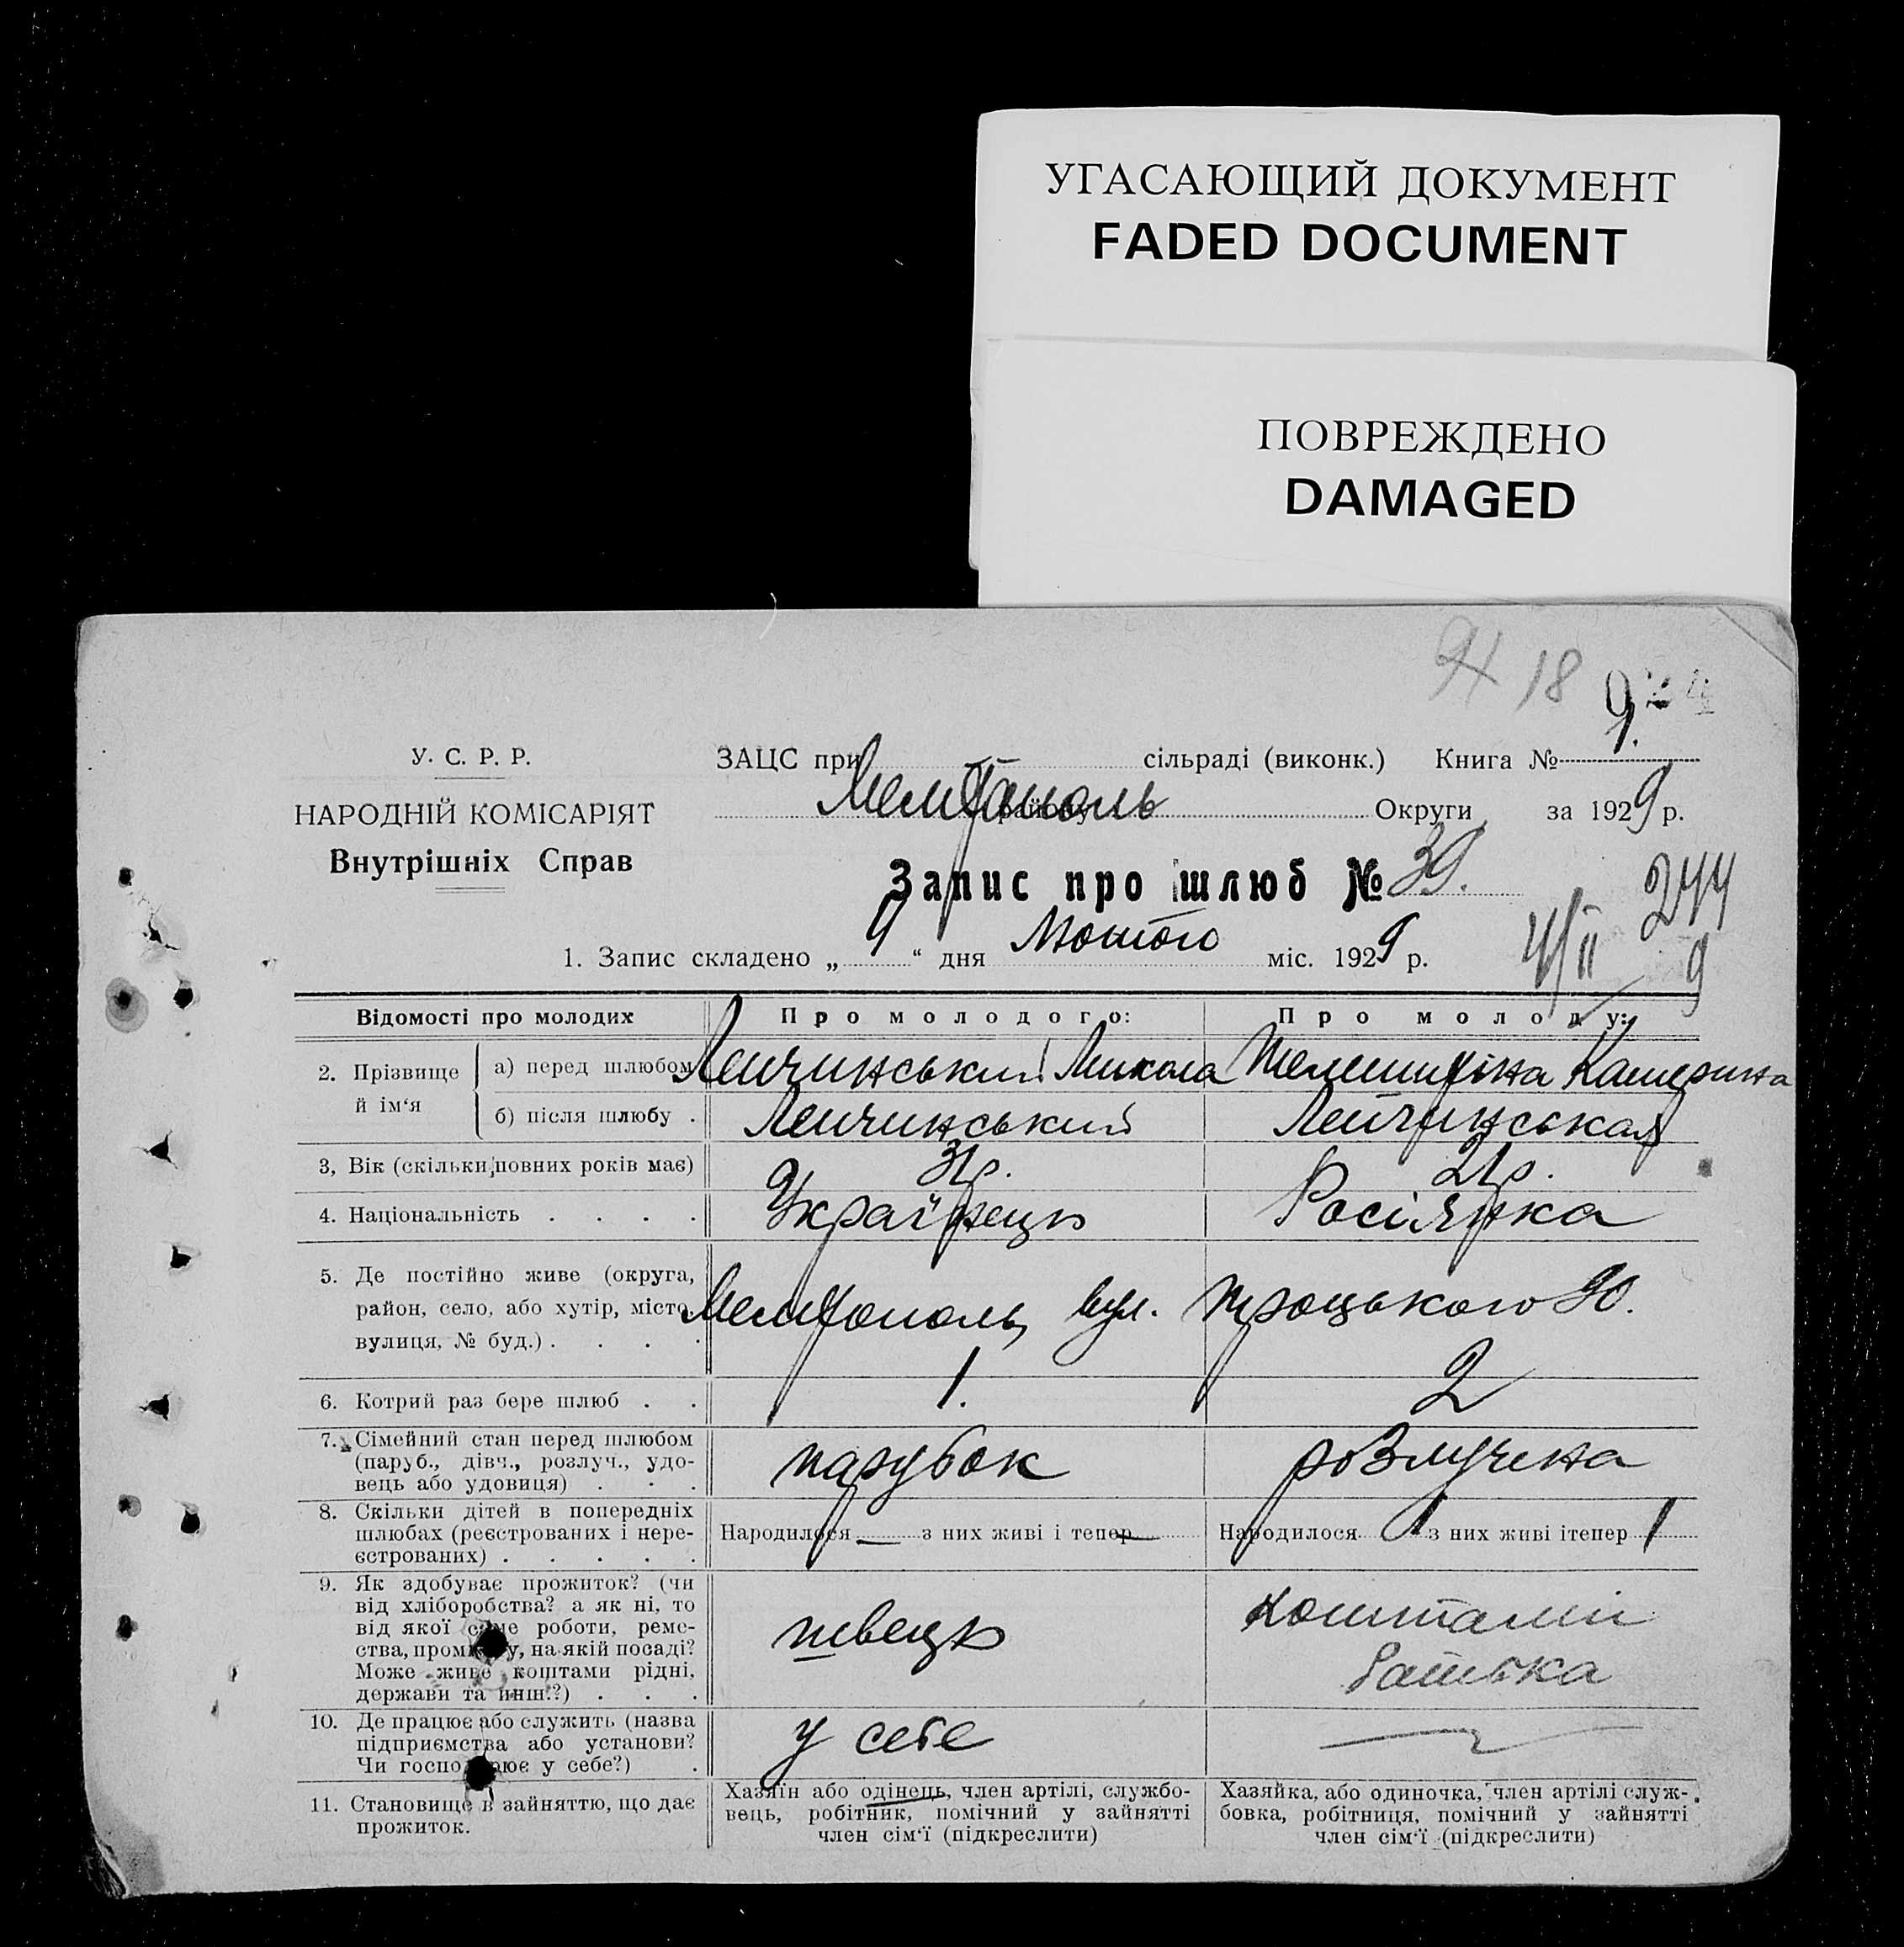 УГАСАЮЩИЙ ДОКУМЕНТ
FADED DOCUMENT
ПОВРЕЖДЕНО
DAMAGED
18
У. С. Р. Р.
НАРОДНІЙ КОМІСАРІЯТ
Внутрішніх Справ
ЗАЦС при сільраді (виконк.) Книга № 9.
Мелітополь району Округи за 1929 р.
Запис про шлюб № 39.
244
1. Запис складено „ 9 “ дня Лютого міс. 1929 р.
Відомості про молодих Про молодого: Про молоду:
2. Прізвище й ім‘я
а) перед шлюбом Лейчинський Микола Катерина
б) після шлюбу . Лейчинський Лейчинськая
3, Вік (скільки повних років має) 31р. 21р.
4. Національність . . . . Українець Росіянка
5. Де постійно живе (округа,
район, село, або хутір, місто,
вулиця, № буд.) . . . .
Мелітополь, вул. Троцького 90.
6. Котрий раз бере шлюб . . 1. 2
7. Сімейний стан перед шлюбом
(паруб., дівч., розлуч., удо-
вець або удовиця) . . .
парубок розлучена
8. Скільки дітей в попередніх
шлюбах (реєстрованих і нере-
єстрованих) . . . . .
Народилося — з них живі і тепер —
Народилося 1 з них живі ітепер 1
9. Як здобуває прожиток? (чи
від хліборобства? а як ні, то
від якої саме роботи, реме-
ства, промислу, на якій посаді?
Може живе коштами рідні,
держави та инш.?) . . .
швець
коштами
батька
10. Де працює або служить (назва
підприємства або установи?
Чи господарює у себе?) .
у себе —
11. Становище в зайняттю, що дає
прожиток.
Хазяїн або одінець, член артілі, службо-
вець, робітник, помічний у зайнятті
член сім‘ї (підкреслити)
Хазяйка, або одиночка, член артілі служ-
бовка, робітниця, помічний у зайнятті
член сім‘ї (підкреслити)